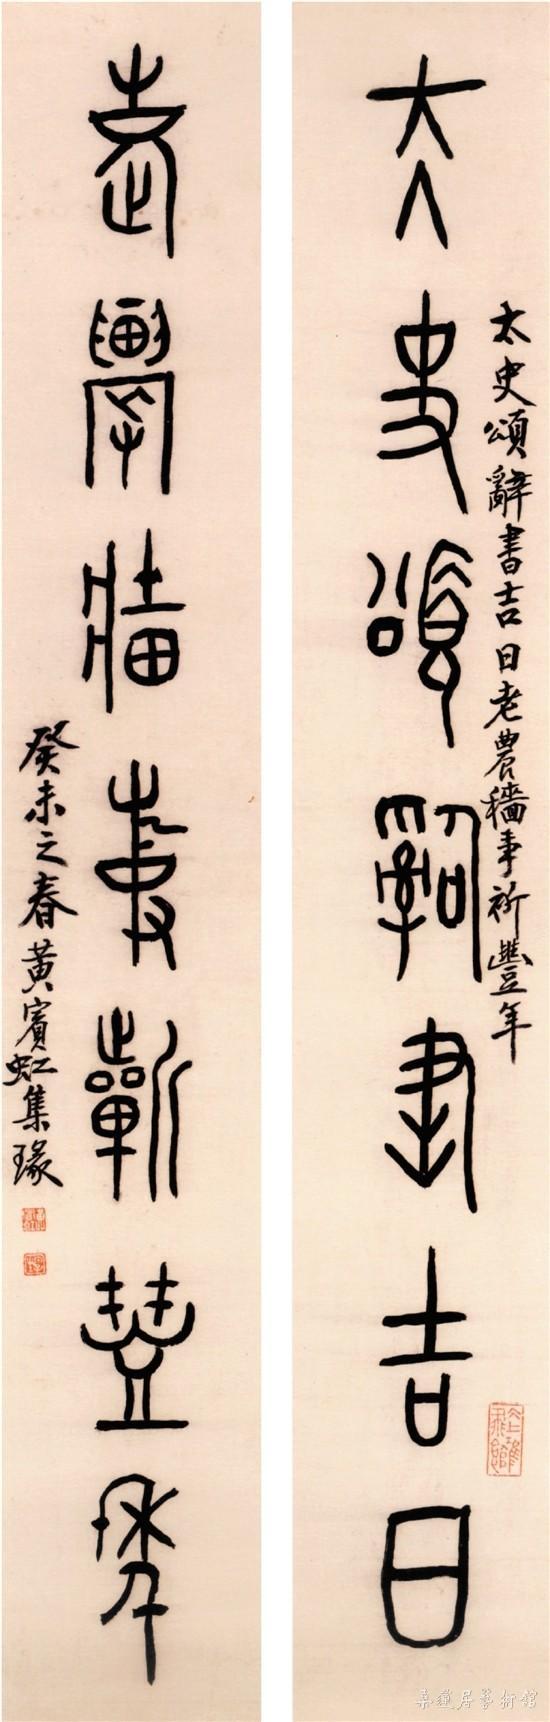 大史頌辭書吉日
太史頌辭書吉日老農穡事祈豐年
老農牆事蘄豐年
癸未之春黃賓虹集瑑
桑蓮居藝術館